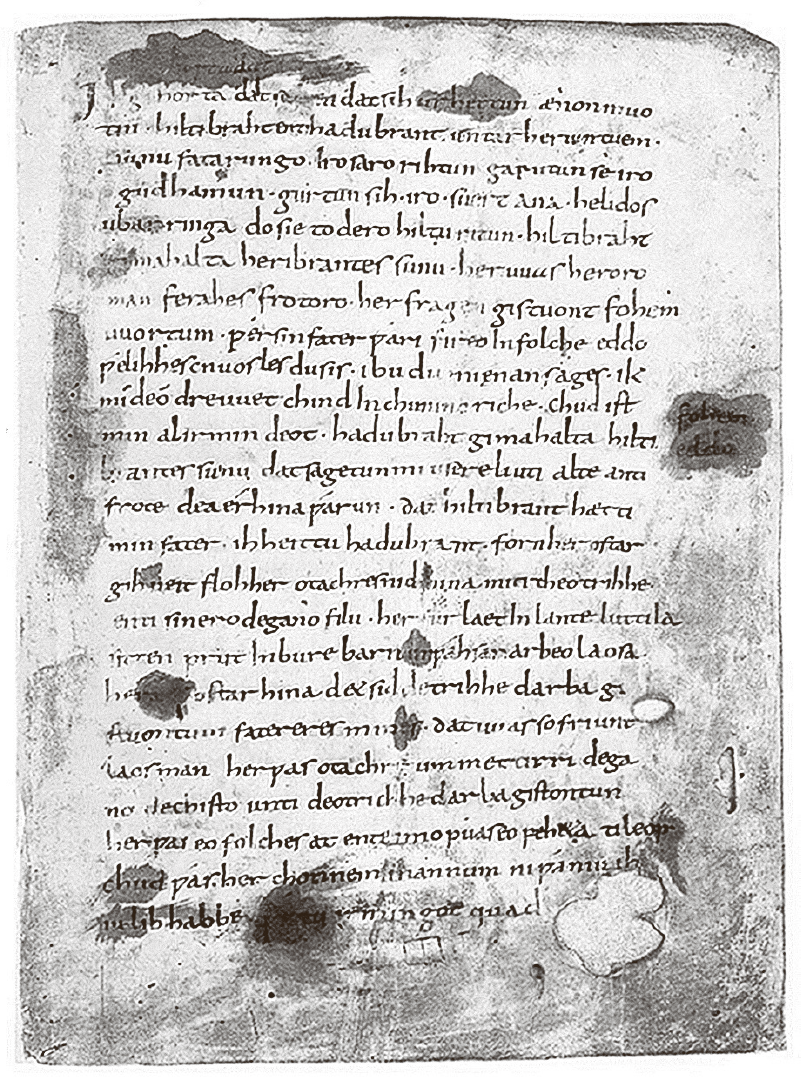 horta đat đat sih urhettun ænon muo
tin · hiltibraht enti hađubrant · untar heriun tuem ·
sunu fatarungo · iro saro rihtun garutun se iro
guđhamun · gurtun sih · iro · suert ana · helidos
ubar ringa do sie to dero hiltu ritun · hiltibraht
gimahalta heribrantes sunu · her uuas heroro
man ferahes frotoro · her fragen gistuont fohem
uuortum · ƿer sin fater ƿari fireo In folche eddo
ƿelihhes cnuosles du sis · ibu du mi enan sages · ik
mi deo dre uuet chind In chuninc riche · chud ist
min al irmin deot · hadubraht gimahalta hilti
brantes sunu dat sagetun mi usere liuti alte anti
frote dea erhina ƿarun · dat hiltibrant hætti
min fater · ih heittu hadubrant · forn her ostar
gihueit floh her otachres nid hina miti theotrihhe
enti sinero degano filu · her fur laet In lante luttila
sitten prut In bure barn unƿahsan arbeo laosa
her ostar hina det sid detrihhe darba gi
stuontum fatereres mines · dat uuas so friunt
laos man her ƿas otachre ummet tirri dega
no dechisto unti deotrichhe darba gistontun
her ƿas eo folches at ente imo ƿuas eo ƿeheta ti leop
chud ƿas her chonnem mannum ni ƿaniu ih
iu lib habbe irmingot quad
fohem
eddo